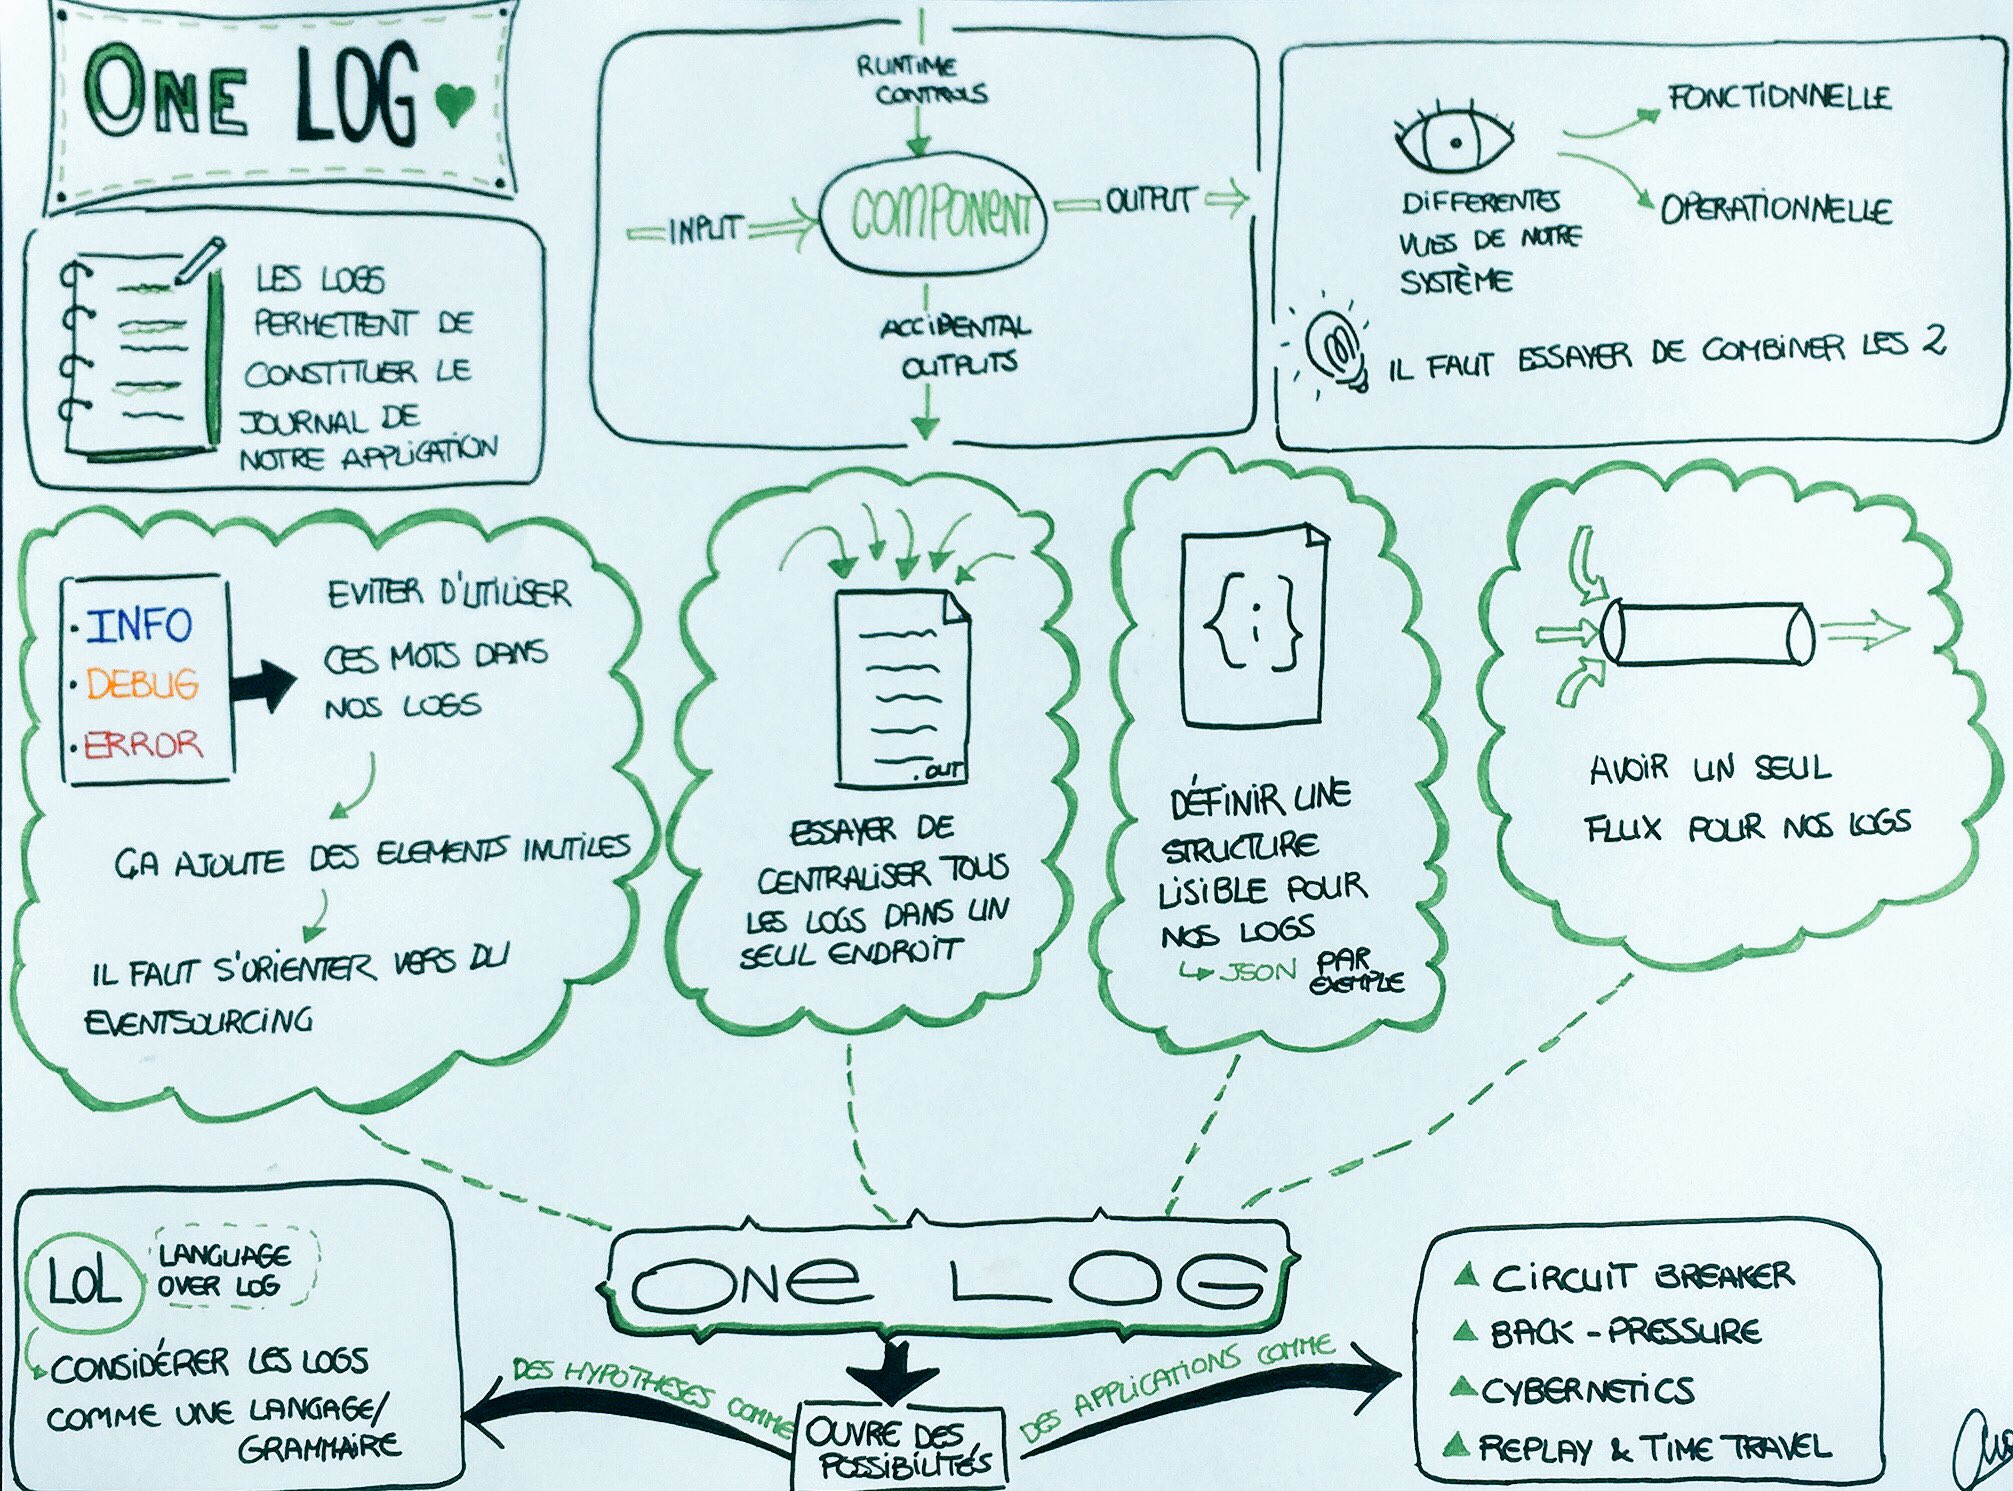 ONE LOG
LES LOGS
PERMETTENT DE
CONSTITUER LE
JOURNAL DE
NOTRE APPLICATION
RUNTIME
CONTROLS
INPUT
COMPONENT
OUTPUT
ACCIDENTAL
OUTPUTS
FONCTIONNELLE
OPERATIONNELLE
DIFFERENTES
VUES DE NOTRE
SYSTÈME
IL FAUT ESSAYER DE COMBINER LES 2
· INFO
· DEBUG
· ERROR
EVITER D'UTILISER
CES MOTS DANS
NOS LOGS
ÇA AJOUTE DES ELEMENTS INUTILES
IL FAUT S'ORIENTER VERS DU
EVENTSOURCING
.OUT
ESSAYER DE
CENTRALISER TOUS
LES LOGS DANS UN
SEUL ENDROIT
{ ; }
DÉFINIR UNE
STRUCTURE
LISIBLE POUR
NOS LOGS
↳ JSON PAR
EXEMPLE
AVOIR UN SEUL
FLUX POUR NOS LOGS
ONE LOG
LOL
LANGUAGE
OVER LOG
CONSIDÉRER LES LOGS
COMME UNE LANGAGE/
GRAMMAIRE
DES HYPOTHESES COMME
OUVRE DES
POSSIBILITÉS
DES APPLICATIONS COMME
CIRCUIT BREAKER
BACK-PRESSURE
CYBERNETICS
REPLAY & TIME TRAVEL